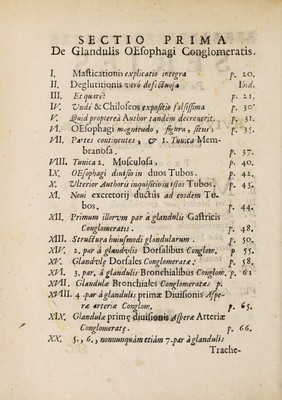 SECTIO PRIMA
De Glandulis OEsophagi Conglomeratis.
I. Masticationis explicatio integra p. 20.
II. Deglutitionis verò defectuosa Ibid.
III. Et quare? p. 21.
IV. Vnde & Chiloseos expositio falsissima p. 30
V. Quid propterea Author tandem decreverit. p. 31.
VI. OEsophagi magnitudo, figura, situs; p. 35.
VII. Partes continentes, & 1. Tunica Mem-
branosa. p. 37.
VIII. Tunica 2. Musculosa. p. 40.
IX. OEsophagi divisio in duos Tubos. p. 42.
X. Vlterior Authoris inquisitio in istos Tubos. p. 43.
XI. Noui excretorij ductus ad eosdem Tu-
bos. p. 44.
XII. Primum illorvm par à glandulis Gastricis
Conglomeratis. p. 48.
XIII. Structura huiusmodi glandularum. p. 50.
XIV. 2. par à glandvlis Dorsalibus Conglom. p 55.
XV. Glandvlę Dorsales Conglomeratæ: p. 58.
XVI. 3. par. à glandulis Bronchialibus Conglom. p. 61
XVII. Glandulæ Bronchiales Conglomeratæ p.
XVIII. 4 .par à glandulis primæ Diuisionis Aspe-
ræ arteriæ Conglom. p. 65.
XIX. Glandulæ primę diuisionis Asperæ Arteriæ
Conglomeratę. p. 66.
XX. 5., 6., nonnunquàm etiàm 7. par à glandulis
Trache-